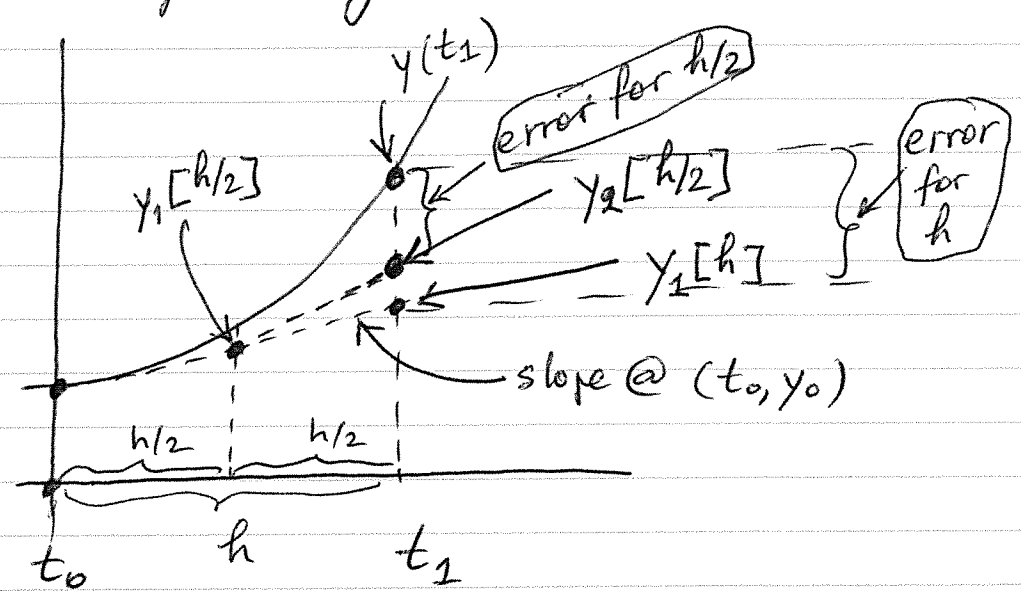 y(t1)
error for h/2
error
for
h
y1[h/2]
y2[h/2]
y1[h]
slope @ (to, yo)
h/2
h/2
h
to
t1